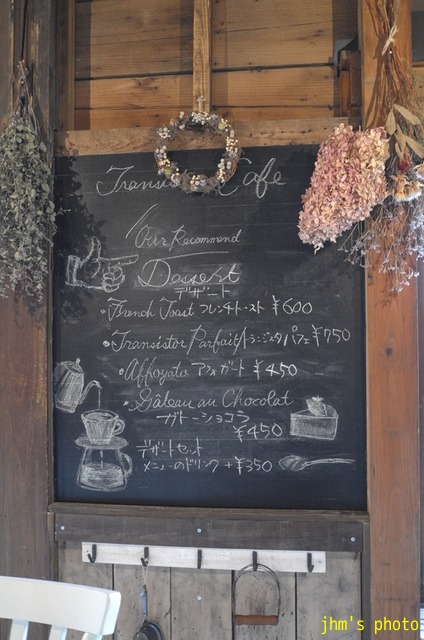 Transistor Cafe
Our Recommend
Dessert
デザート
・French Toast フレンチトースト ¥600
・Transistor Parfait トランジスタパフェ ¥750
・Affogato アフォガート ¥450
・Gâteau au Chocolat
ガトーショコラ
¥450
デザートセット
メニューのドリンク +¥350
jhm's photo